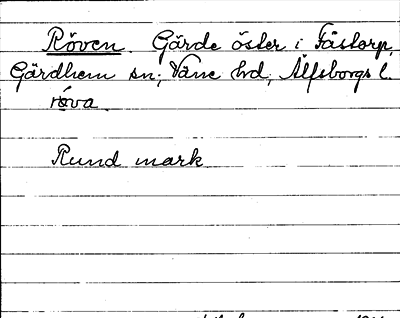 Röven. Gärde öster i Fästorp,
Gärdhem sn; Väne hd, Älfsborgs l.
röva.
Rund mark